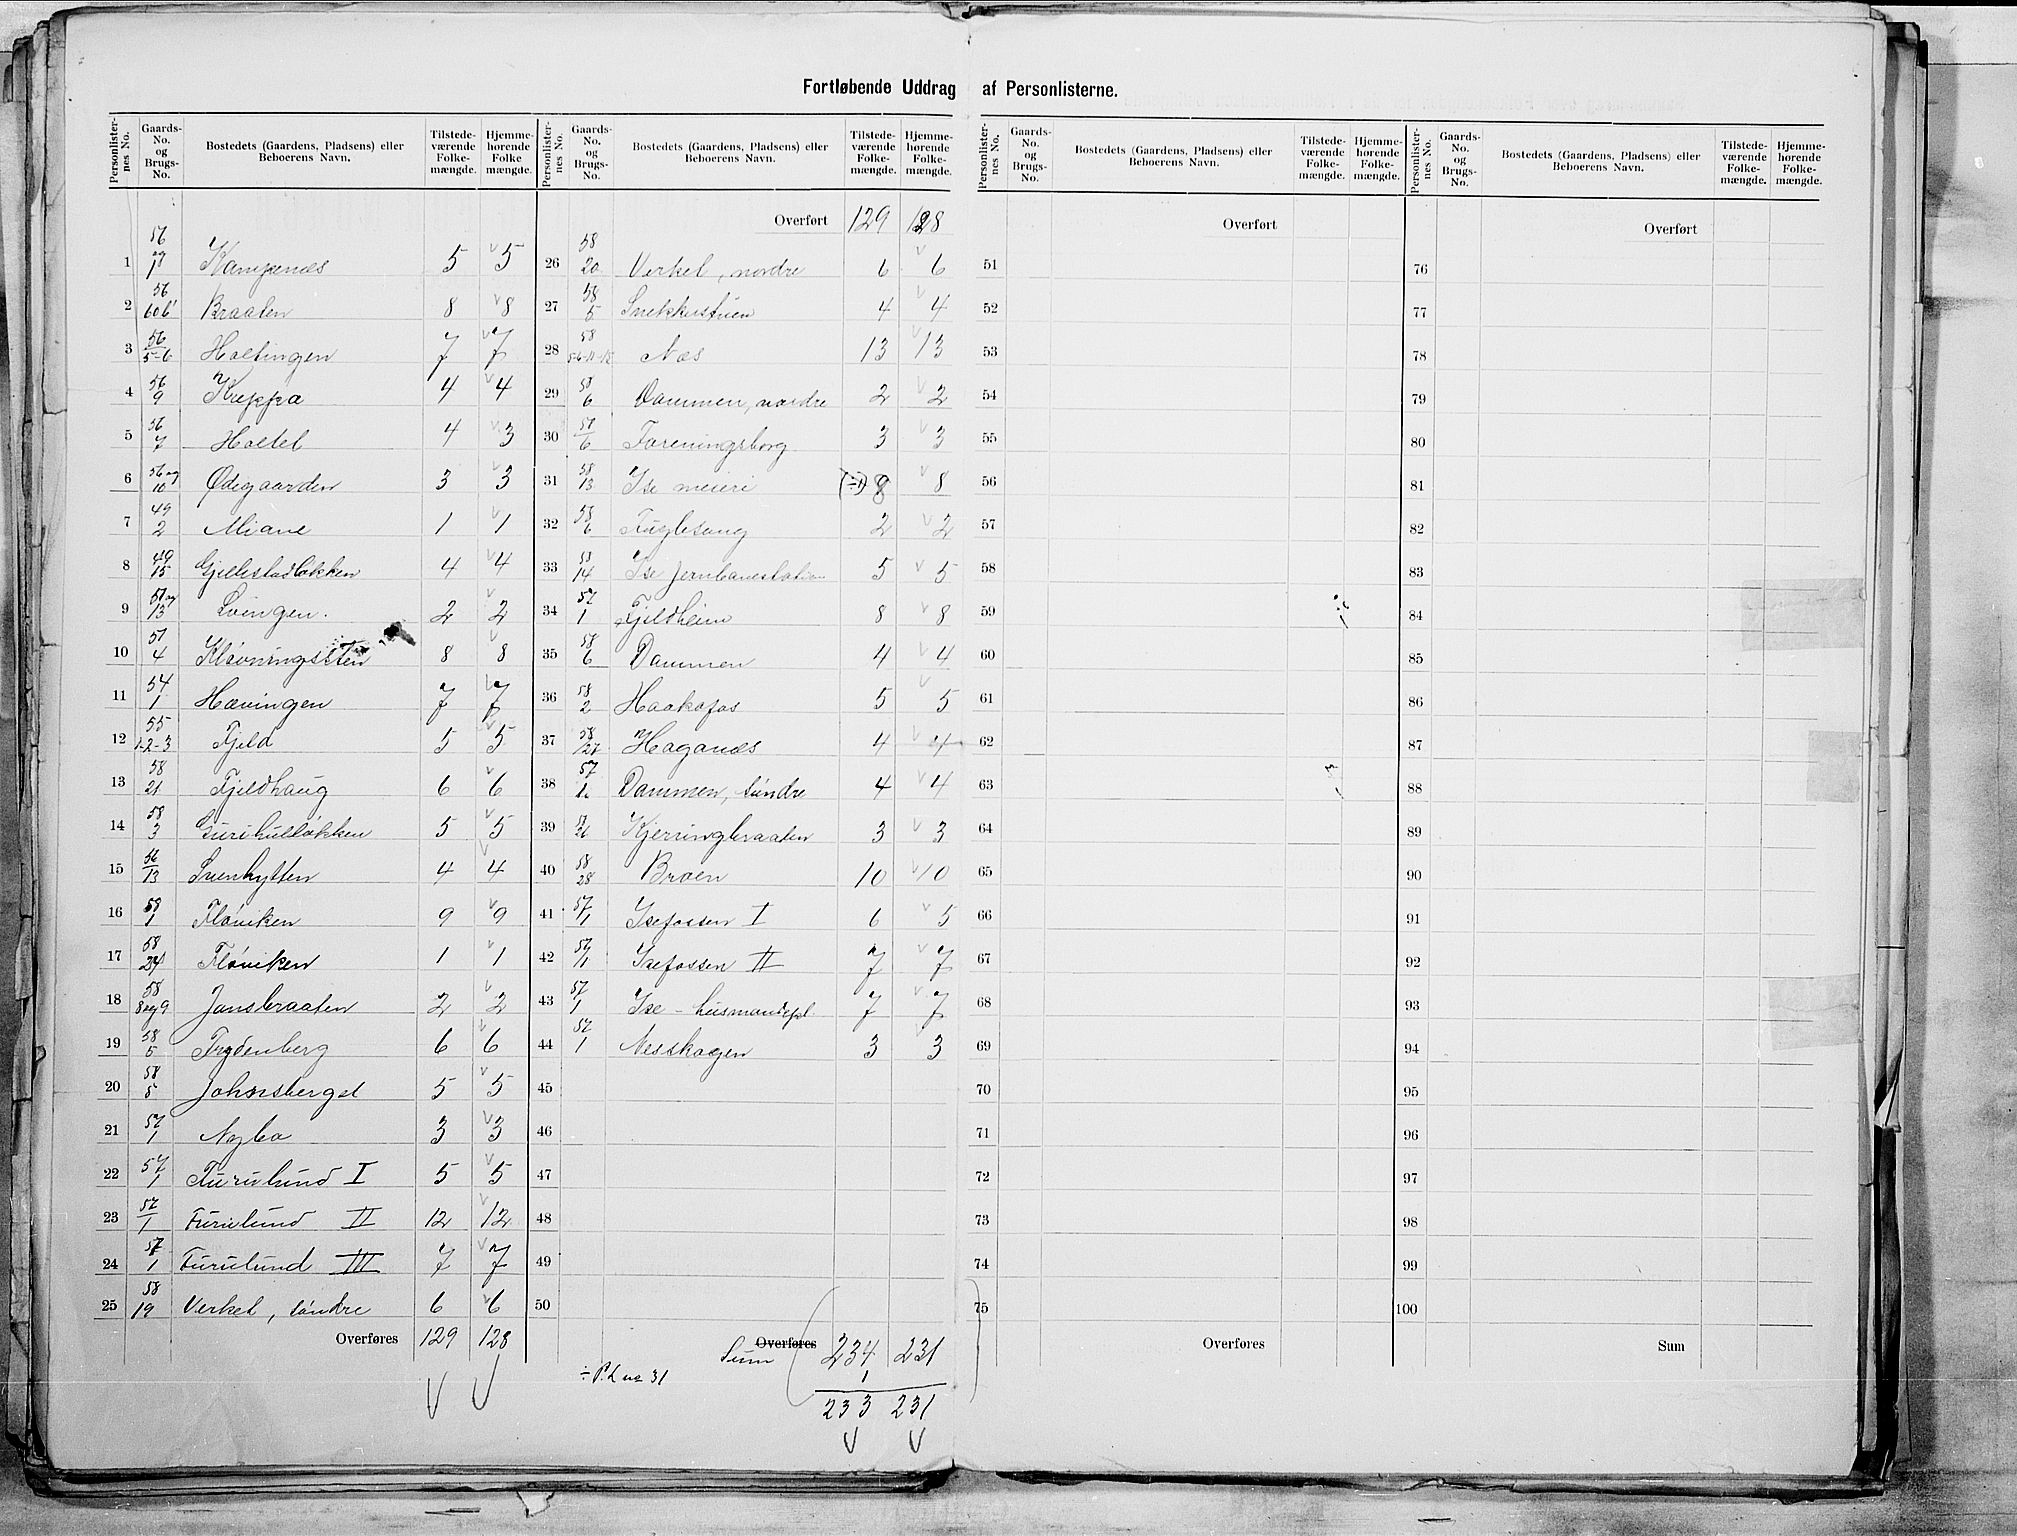 Fortløbende Uddrag af Personlisterne.
Personlister-nes No. Gaards-No. og Brugs-No. Bostedets (Gaardens, Pladsens) eller Beboerens Navn. Tilstede-værende Folke-mængde. Hjemme-hørende Folke mængde. Personlister-nes No. Gaards-No. og Brugs-No. Bostedets (Gaardens, Pladsens) eller Beboerens Navn. Tilstede-værende Folke-mængde. Hjemme-hørende Folke-mængde.
Overført 129 128
1 56 Kampenæs 5 5
2 56 Braaten 8 8
3 56/5-6 Holtingen 7 7
4 56/9 Kreppa 4 4
5 56/7 Holtet 4 3
6 56 og/10 Ødegaarden 3 3
7 49/2 Miane 1 1
8 49/15 Gjellestadløkken 4 4
9 51 og/13 Svingen. 2 2
10 51/4 Kløvningssten 8 8
11 54/1 Hævingen 7 7
12 55/1-2-3 Fjeld 5 5
13 58/21 Fjeldhaug 6 6
14 58/3 Gurihulløkken 5 5
15 56/13 Svenhytten 4 4
16 58/1 Fløviken 9 9
17 58/24 Fløviken 1 1
18 58/8 og 9 Jansbraaten 2 2
19 58/5 Frydenberg 6 6
20 58/5 Johnsberget 5 5
21 57/1 Nybo 3 3
22 57/1 Furulund I 5 5
23 57/1 Furulund II 12 12
24 57/1 Furulund III 7 7
25 58/19 Verket, søndre 6 6
Overføres 129 128
26 58/20 Verket, nordre 6 6
27 58/5 Snekkerstuen 4 4
28 58/5-6-11-15 Næs 13 13
29 58/6 Dammen, nordre 2 2
30 57/6 Foreningsborg 3 3
31 58/13 Ise meieri (÷1) 8 8
32 58/6 Fuglesang 2 2
33 53/14 Ise Jernbanestation 5 5
34 57/1 Fjeldheim 8 8
35 58/6 Dammen 4 4
36 58/2 Haakafos 5 5
37 58/27 Haganæs 4 4
38 57/1 Dammen, søndre 4 4
39 Kjerringbraaten 3 3
40 58/28 Broen 10 10
41 57/1 Isefossen I 6 5
42 57/1 Isefossen II 7 7
43 57/1 Ise - husmandspl. 7 7
44 57/1 Nesskogen 3 3
45
46
47
48
49
50
Overføres
Sum 234 231
÷ P.L no 31 1
233 231
Personlister-nes No. Gaards-No. og Brugs-No. Bostedets (Gaardens, Pladsens) eller Beboerens Navn. Tilstede-værende Folke-mængde. Hjemme-hørende Folke-mængde. Personlister-nes No. Gaards-No. og Brugs-No. Bostedets (Gaardens, Pladsens) eller Beboerens Navn. Tilstede-værende Folke-mængde. Hjemme-hørende Folke-mængde.
Overført Overført
51 76
52 77
53 78
54 79
55 80
56 81
57 82
58 83
59 84
60 85
61 86
62 87
63 88
64 89
65 90
66 91
67 92
68 93
69 94
70 95
71 96
72 97
73 98
74 99
75 100
Overføres Sum